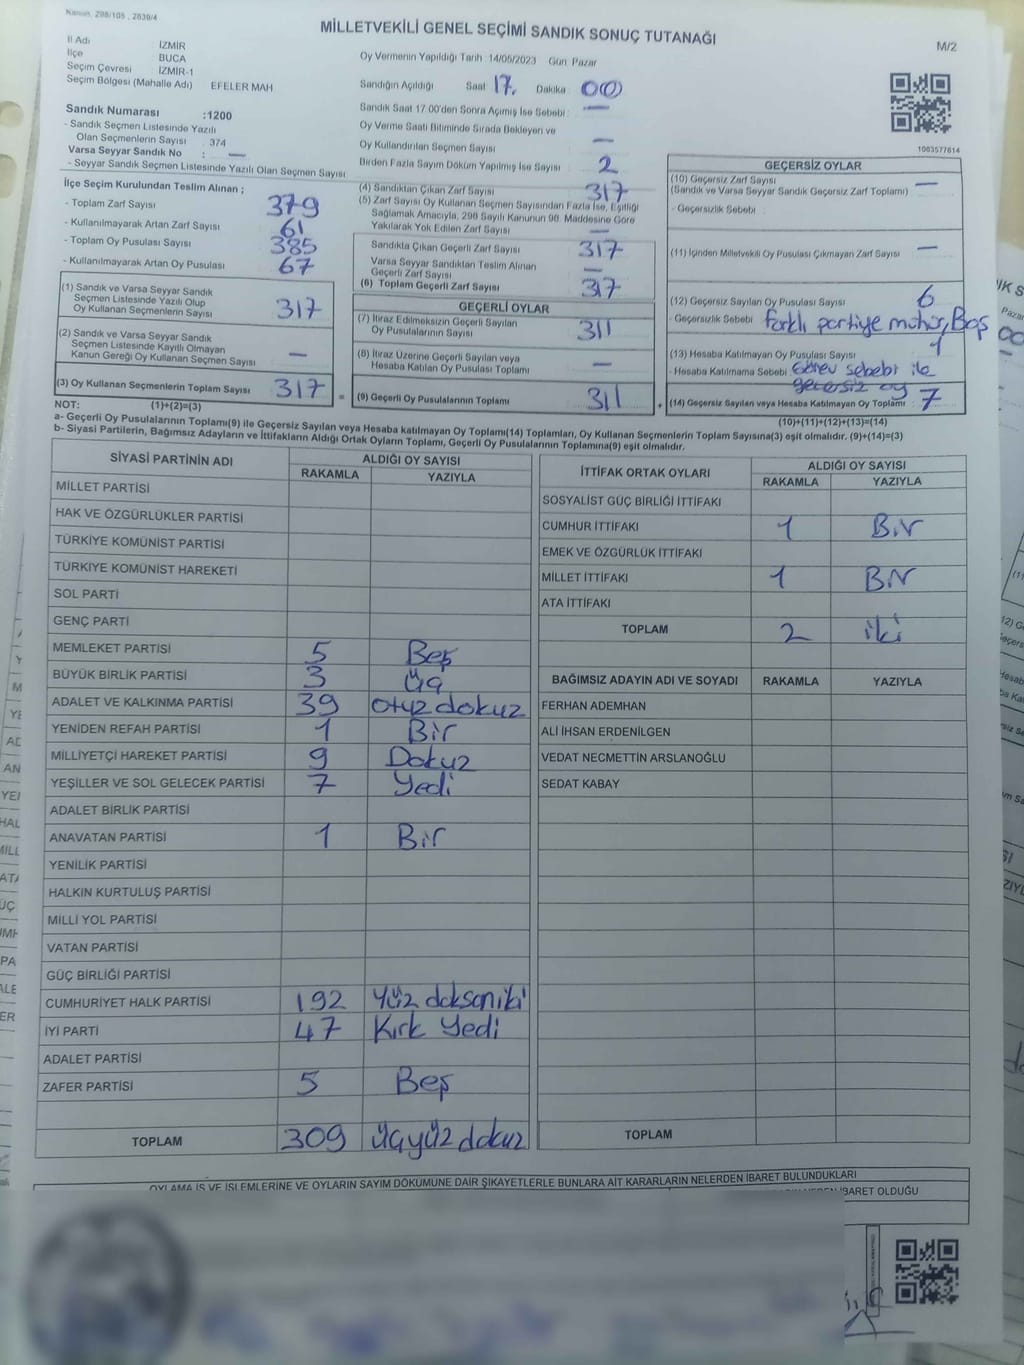 Kanun. 298/105 , 2839/4
MİLLETVEKİLİ GENEL SEÇİMİ SANDIK SONUÇ TUTANAĞI
M/2
İl Adı İZMİR
İlçe BUCA
Seçim Çevresi İZMİR-1
Seçim Bölgesi (Mahalle Adı) EFELER MAH
Oy Vermenin Yapıldığı Tarih 14/05/2023 Gün Pazar
Sandığın Açıldığı Saat 17. Dakika 00
Sandık Saat 17:00'den Sonra Açımış İse Sebebi : —
Oy Verme Saati Bitiminde Sırada Bekleyen ve
Oy Kullandırılan Seçmen Sayısı —
Birden Fazla Sayım Döküm Yapılmış İse Sayısı 2
Sandık Numarası :1200
- Sandık Seçmen Listesinde Yazılı
Olan Seçmenlerin Sayısı : 374
Varsa Seyyar Sandık No : —
- Seyyar Sandık Seçmen Listesinde Yazılı Olan Seçmen Sayısı
1083577614
İlçe Seçim Kurulundan Teslim Alınan ;
- Toplam Zarf Sayısı 379
- Kullanılmayarak Artan Zarf Sayısı 61
- Toplam Oy Pusulası Sayısı 385
- Kullanılmayarak Artan Oy Pusulası 67
(1) Sandık ve Varsa Seyyar Sandık
Seçmen Listesinde Yazılı Olup
Oy Kullanan Seçmenlerin Sayısı 317
(2) Sandık ve Varsa Seyyar Sandık
Seçmen Listesinde Kayıtlı Olmayan
Kanun Gereği Oy Kullanan Seçmen Sayısı —
(3) Oy Kullanan Seçmenlerin Toplam Sayısı 317 =
(4) Sandıktan Çıkan Zarf Sayısı 317
(5) Zarf Sayısı Oy Kullanan Seçmen Sayısından Fazla İse, Eşitliği
Sağlamak Amacıyla, 298 Sayılı Kanunun 98. Maddesine Göre
Yakılarak Yok Edilen Zarf Sayısı —
Sandıkta Çıkan Geçerli Zarf Sayısı 317
Varsa Seyyar Sandıktan Teslim Alınan
Geçerli Zarf Sayısı —
(6) Toplam Geçerli Zarf Sayısı 317
GEÇERLİ OYLAR
(7) İtiraz Edilmeksizin Geçerli Sayılan
Oy Pusulalarının Sayısı 311
(8) İtiraz Üzerine Geçerli Sayılan veya
Hesaba Katılan Oy Pusulaları Toplamı —
(9) Geçerli Oy Pusulalarının Toplamı 311 +
GEÇERSİZ OYLAR
(10) Geçersiz Zarf Sayısı —
(Sandık ve Varsa Seyyar Sandık Geçersiz Zarf Toplamı)
- Geçersizlik Sebebi :
(11) İçinden Milletvekili Oy Pusulası Çıkmayan Zarf Sayısı —
(12) Geçersiz Sayılan Oy Pusulası Sayısı 6
- Geçersizlik Sebebi farklı partiye mühür, Boş
(13) Hesaba Katılmayan Oy Pusulası Sayısı 1
- Hesaba Katılmama Sebebi Görev sebebi ile
geçersiz oy
(14) Geçersiz Sayılan veya Hesaba Katılmayan Oy Toplamı : 7
NOT: (1)+(2)=(3) (10)+(11)+(12)+(13)=(14)
a- Geçerli Oy Pusulalarının Toplamı(9) ile Geçersiz Sayılan veya Hesaba katılmayan Oy Toplamı(14) Toplamları, Oy Kullanan Seçmenlerin Toplam Sayısına(3) eşit olmalıdır. (9)+(14)=(3)
b- Siyasi Partilerin, Bağımsız Adayların ve İttifakların Aldığı Ortak Oyların Toplamı, Geçerli Oy Pusulalarının Toplamına(9) eşit olmalıdır.
SİYASİ PARTİNİN ADI ALDIĞI OY SAYISI
RAKAMLA YAZIYLA
MİLLET PARTİSİ
HAK VE ÖZGÜRLÜKLER PARTİSİ
TÜRKİYE KOMÜNİST PARTİSİ
TÜRKİYE KOMÜNİST HAREKETİ
SOL PARTİ
GENÇ PARTİ
MEMLEKET PARTİSİ 5 Beş
BÜYÜK BİRLİK PARTİSİ 3 Üç
ADALET VE KALKINMA PARTİSİ 39 otuz dokuz
YENİDEN REFAH PARTİSİ 1 Bir
MİLLİYETÇİ HAREKET PARTİSİ 9 Dokuz
YEŞİLLER VE SOL GELECEK PARTİSİ 7 Yedi
ADALET BİRLİK PARTİSİ
ANAVATAN PARTİSİ 1 Bir
YENİLİK PARTİSİ
HALKIN KURTULUŞ PARTİSİ
MİLLİ YOL PARTİSİ
VATAN PARTİSİ
GÜÇ BİRLİĞİ PARTİSİ
CUMHURİYET HALK PARTİSİ 192 Yüz doksan iki
İYİ PARTİ 47 Kırk Yedi
ADALET PARTİSİ
ZAFER PARTİSİ 5 Beş
TOPLAM 309 üçyüz dokuz
İTTİFAK ORTAK OYLARI ALDIĞI OY SAYISI
RAKAMLA YAZIYLA
SOSYALİST GÜÇ BİRLİĞİ İTTİFAKI
CUMHUR İTTİFAKI 1 Bir
EMEK VE ÖZGÜRLÜK İTTİFAKI
MİLLET İTTİFAKI 1 Bir
ATA İTTİFAKI
TOPLAM 2 iki
BAĞIMSIZ ADAYIN ADI VE SOYADI RAKAMLA YAZIYLA
FERHAN ADEMHAN
ALİ İHSAN ERDENİLGEN
VEDAT NECMETTİN ARSLANOĞLU
SEDAT KABAY
TOPLAM
OYLAMA İŞ VE İŞLEMLERİNE VE OYLARIN SAYIM DÖKÜMÜNE DAİR ŞİKAYETLERLE BUNLARA AİT KARARLARIN NELERDEN İBARET BULUNDUKLARI
İBARET OLDUĞU